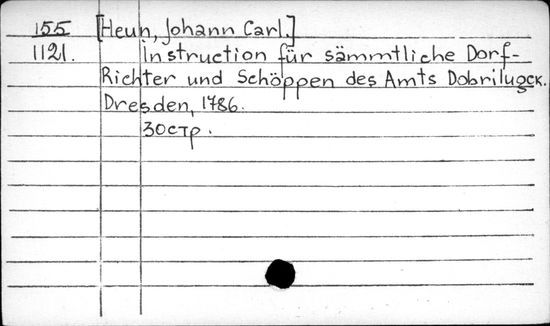 155 [Heun, Johann Carl.]
1121. Instruction für sämmtliche Dorf-
Richter und Schöppen des Amts Dobrilugck.
Dresden, 1786.
30стр.